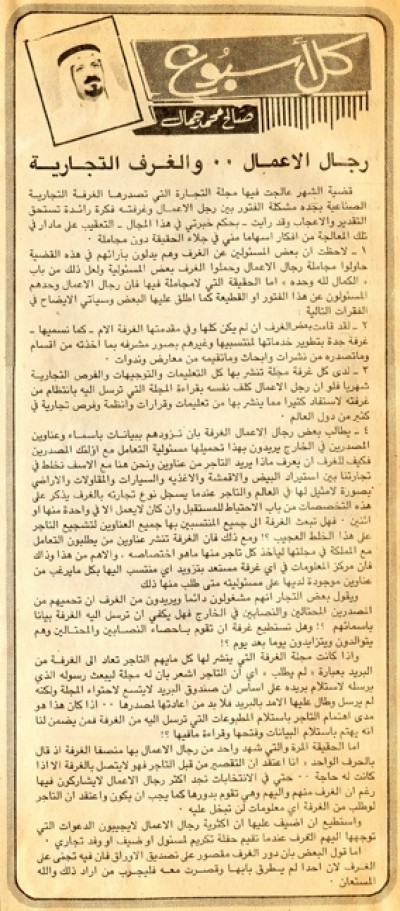 كل أسبوع
صالح محمد جمال
رجال الاعمال ٠٠ والغرف التجارية
قضية الشهر عالجت فيها مجلة التجارة التي تصدرها الغرفة التجارية
الصناعية بجده مشكلة الفتور بين رجل الاعمال وغرفته فكرة رائدة تستحق
التقدير والاعجاب وقد رايت ـ بحكم خبرتي في هذا المجال ـ التعقيب على مادار في
تلك المعالجة من افكار اسهاما مني في جلاء الحقيقة دون مجاملة ٠
١ ـ لاحظت ان بعض المسئولين عن الغرف وهم يدلون بآرائهم في هذه القضية
حاولوا مجاملة رجال الاعمال وحملوا الغرف بعض المسئولية ولعل ذلك من باب
« الكمال لله وحده » اما الحقيقة التي لامجاملة فيها فان رجال الاعمال وحدهم
المسئولون عن هذا الفتور او القطيعة كما اطلق عليها البعض وسياتي الايضاح في
الفقرات التالية :
٢ ـ لقد قامت بعض الغرف ان لم يكن كلها وفي مقدمتها الغرفة الام ـ كما نسميها ـ
غرفة جدة بتطوير خدماتها لمنتسبيها وغيرهم بصور مشرفه بما اخذته من اقسام
وماتصدره من نشرات وابحاث وماتقيمه من معارض وندوات ٠
٣ ـ لدى كل غرفة مجلة تنشر بها كل التعليمات والتوجيهات والفرص التجارية
شهريا فلو ان رجل الاعمال كلف نفسه بقراءة المجلة التي ترسل اليه بانتظام من
غرفته لاستفاد كثيرا مما ينشر بها من تعليمات وقرارات وانظمة وفرص تجارية في
كثير من دول العالم ٠
٤ ـ يطالب بعض رجال الاعمال الغرفة بان تزودهم ببيانات باسماء وعناوين
المصدرين في الخارج يريدون بهذا تحميلها مسئولية التعامل مع اولئك المصدرين
فكيف للغرف ان يعرف ماذا يريد التاجر من عناوين ونحن هنا مع الاسف نخلط في
تجارتنا بين استيراد البيض والاقمشة والاغذيه والسيارات والمقاولات والاراضي
بصورة لامثيل لها في العالم والتاجر عندما يسجل نوع تجارته بالغرف يذكر على
هذه التخصصات من باب الاحتياط للمستقبل وان كان لايعمل الا في واحدة منها او
اثنين ٠ فهل تبعث الغرفة الى جميع المنتسبين بها جميع العناوين لتشجيع التاجر
على هذا الخلط العجيب ؟! ومع ذلك فان الغرفة تنشر عناوين من يطلبون التعامل
مع المملكة في مجلتها لياخذ كل تاجر منها ماهو اختصاصه ، والاهم من هذا وذاك
فان مركز المعلومات في اي غرفة مستعد بتزويد اي منتسب اليها بكل مايرغب من
عناوين موجودة لديها على مسئوليته متى طلب منها ذلك
ويقول بعض التجار انهم مشغولون دائما ويريدون من الغرف ان تحميهم من
المصدرين المحتالين والنصابين في الخارج فهل يكفي ان ترسل اليه الغرفة بيانا
باسمائهم !! وهل تستطيع غرفة ان تقوم باحصاء النصابين والمحتالين وهم
يتوالدون ويتزايدون يوما بعد يوم ؟!
واذا كانت مجلة الغرفة التي ينشر لها كل مايهم التاجر تعاد الى الغرفة من
البريد بعبارة « لم يطلب » اي ان التاجر اشعر بان له مجلة ليبعث رسوله الذي
يرسله لاستلام بريده على اساس ان صندوق البريد لايتسع لاحتواء المجلة ولكنه
لم يرسل وطال عليها الامد بالبريد فلا بد من اعادتها لمصدرها ٠٠ اذا كان هذا هو
مدى اهتمام التاجر باستلام المطبوعات التي ترسل اليه من الغرفة فمن يضمن لنا
انه يهتم باستلام البيانات وفتحها وقراءة مافيها ؟!
اما الحقيقة المرة والتي شهد واحد من رجال الاعمال بها منصفا الغرفة اذ قال
بالحرف الواحد « انا اعتقد ان التقصير من قبل التاجر فهو لايتصل بالغرفة الا اذا
كانت له حاجة ٠٠ حتى في الانتخابات تجد اكثر رجال الاعمال لايشاركون فيها
رغم ان الغرف منهم واليهم وهي تقوم بدورها كما يجب ان يكون واعتقد ان التاجر
لوطلب من الغرفة اي معلومات لن تبخل عليه ٠
واستطيع ان اضيف عليها ان اكثرية رجال الاعمال لايجيبون الدعوات التي
توجهها اليهم الغرف عندما تقيم حفلة تكريم لمسئول او ضيف او وفد تجاري ٠
اما قول البعض بان دور الغرف مقصور على تصديق الاوراق فان فيه تجنى على
الغرف لان احدا لم يطرق بابها وقصرت معه فليجرب من اراد ذلك والله
المستعان ٠